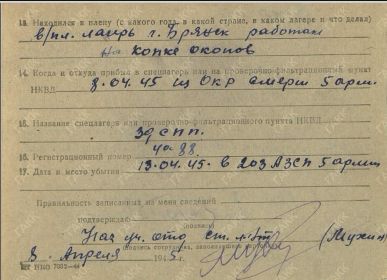 13. Находился в плену (с какого года, в какой стране, в каком лагере и что делал)
в/пл. лагирь г. Брянск работал
на копке окопов
14. Когда и откуда прибыл в спецлагерь или на проверочно-фильтрационный пункт
НКВД 8.04.45 из Окр смерш 5 арм.
15. Название спецлагеря или проверочно-фильтрационного пункта НКВД
39 СПП.
16. Регистрационный номер
17. Дата и место убытия 13.04.45 в 203 АЗСП 5 армии
Правильность записанных на меня сведений
подтверждаю
(подпись)
Нач. уч. отд ст. л-т (Мухин)
(подпись сотрудника, заполнявшего карточку)
8 Апреля 1945 г.